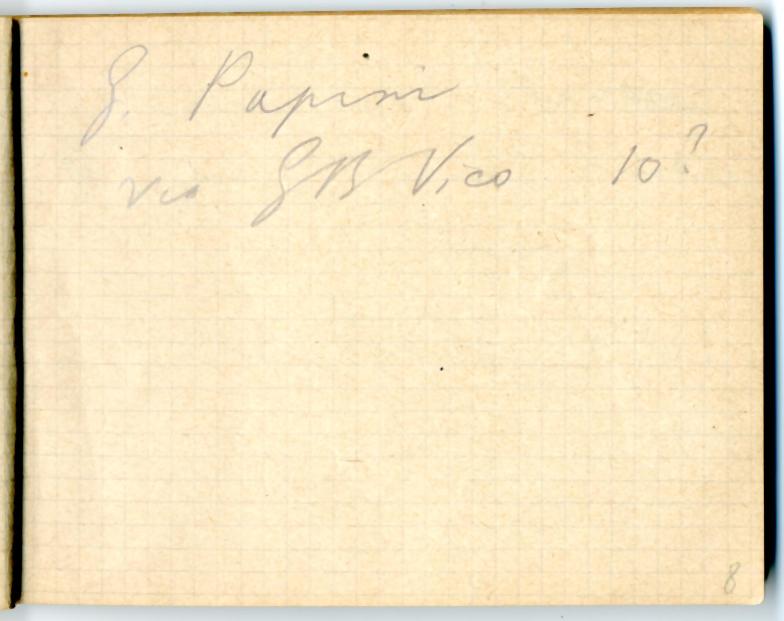 G. Papini
via GB Vico 10?
8